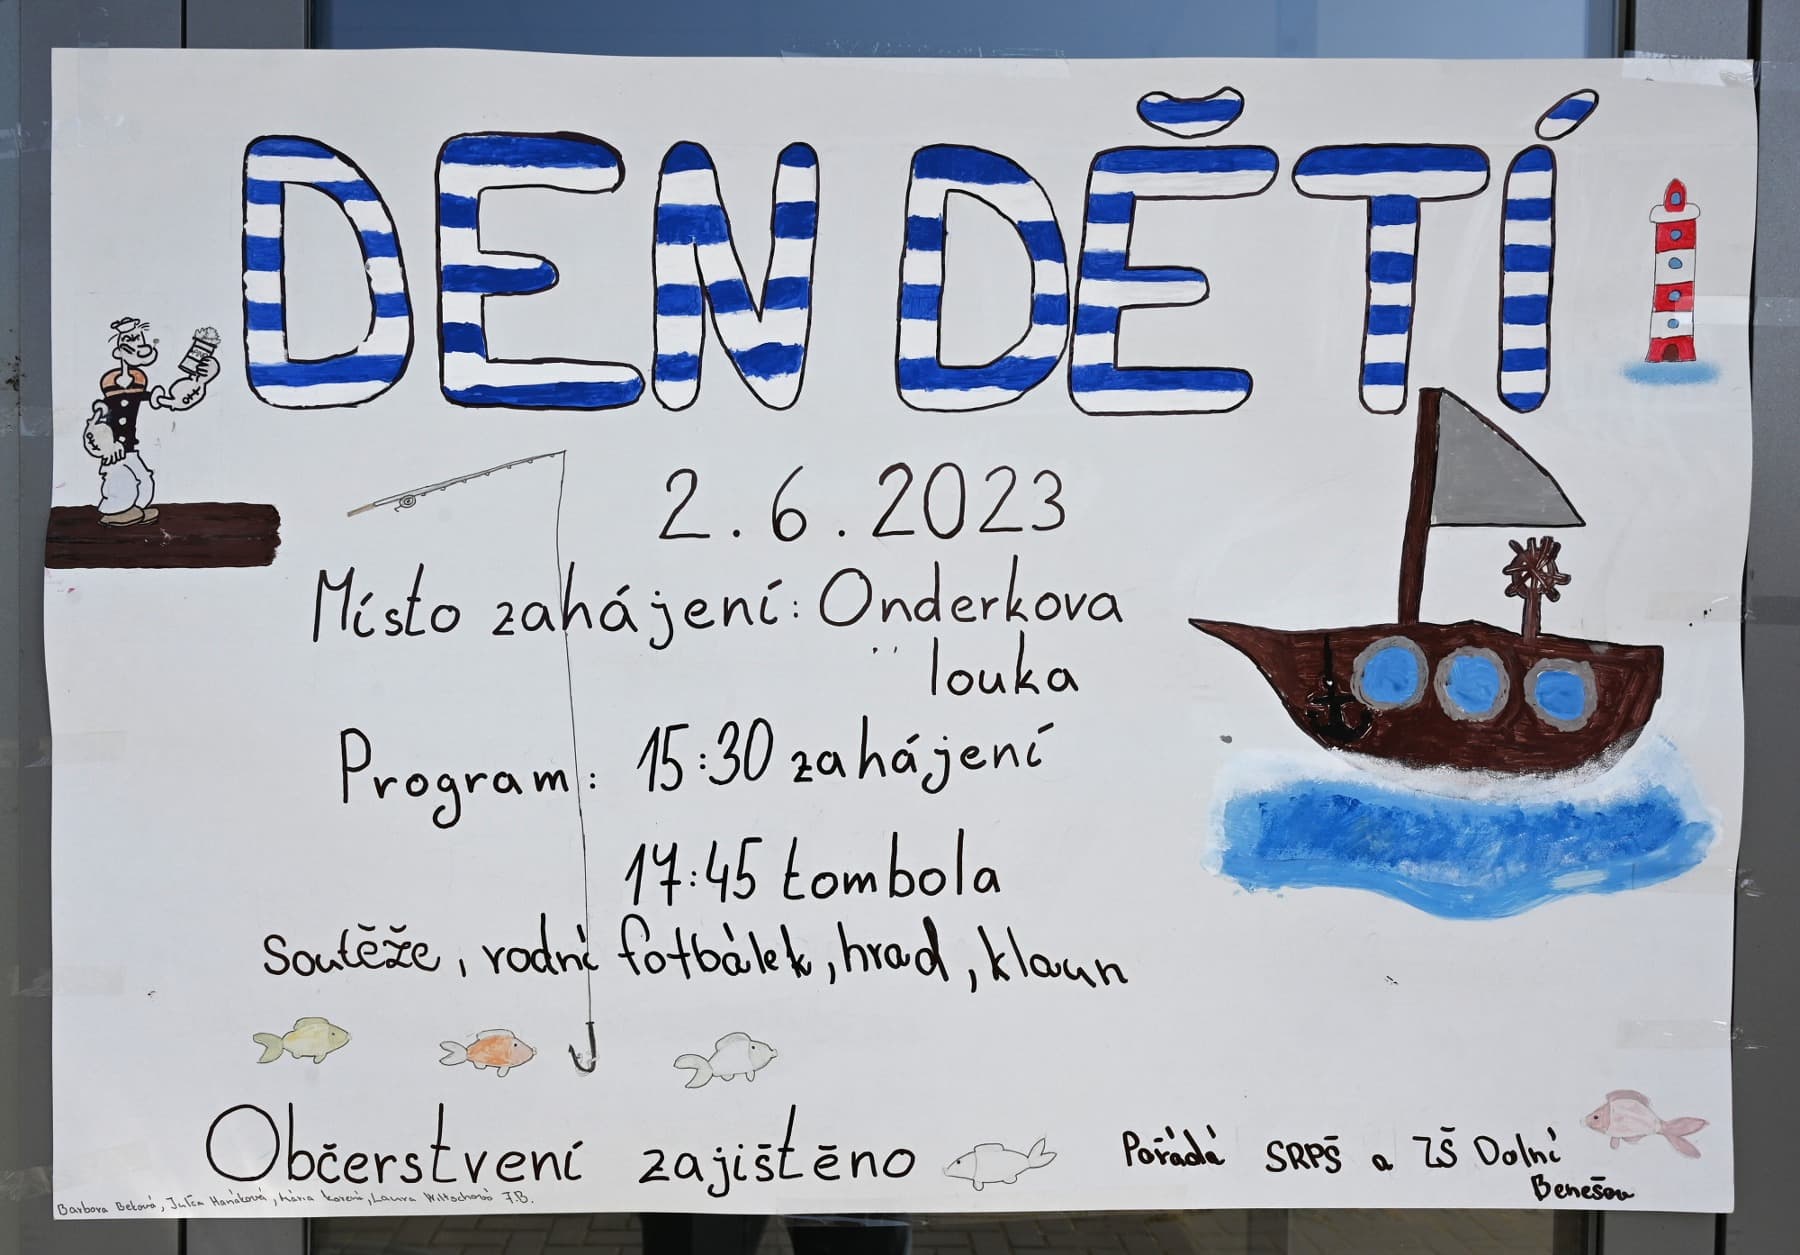 DEN DĚTÍ
2.6.2023
Místo zahájení: Onderkova
louka
Program: 15:30 zahájení
17:45 tombola
Soutěže, vodní fotbálek, hrad, klaun
Občerstvení zajištěno
Pořádá SRPŠ a ZŠ Dolní
Benešov
Barbora Julča Hanáková, Laura 7.B.